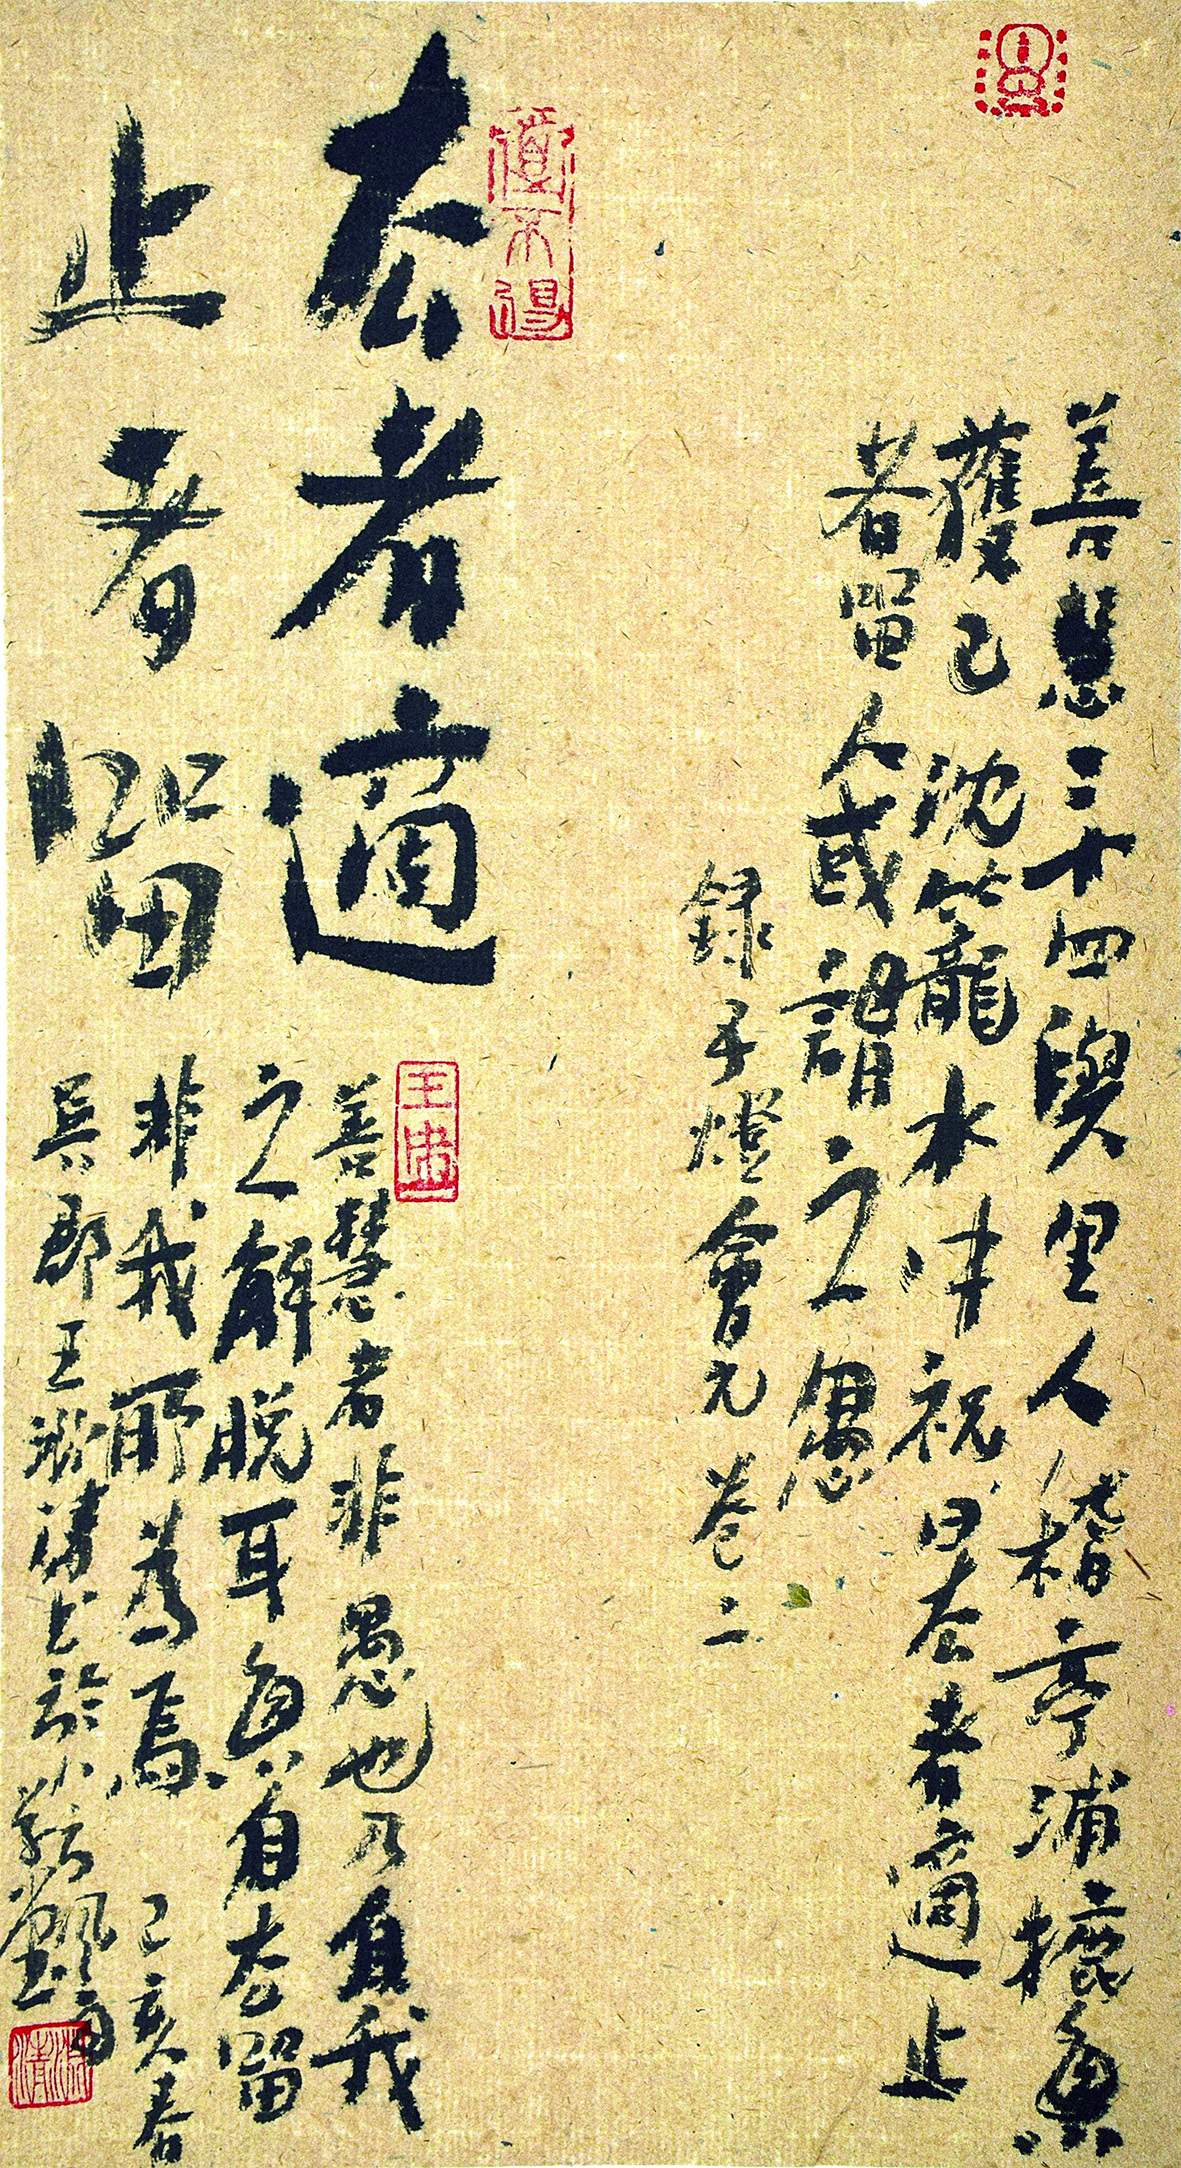 善慧二十四與里人稽亭浦摝魚
獲已沈籠水中祝曰去者適止
者留人或謂之愚
錄五燈會元卷二
去者適
止者留
善慧者非愚也乃自我
之解脫耳魚自去留
非我所為焉 己亥春
吳郡王清書於